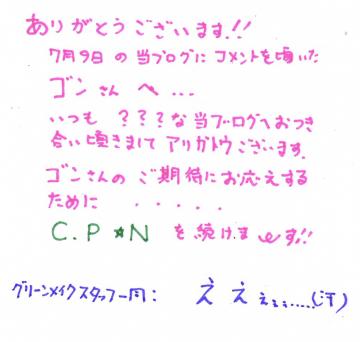 ありがとうございます!!
7月9日の当ブログにコメントを頃いた
ゴンさんへ...
いつも ???な当ブログへおつき
合い頃きましてアリガトウございます.
ゴンさんのご期待にお応えする
ために .....
C.P★Nを続けまーす!!
グリーンメイクスタッフ一同: ええぇぇぇ.....(汗)